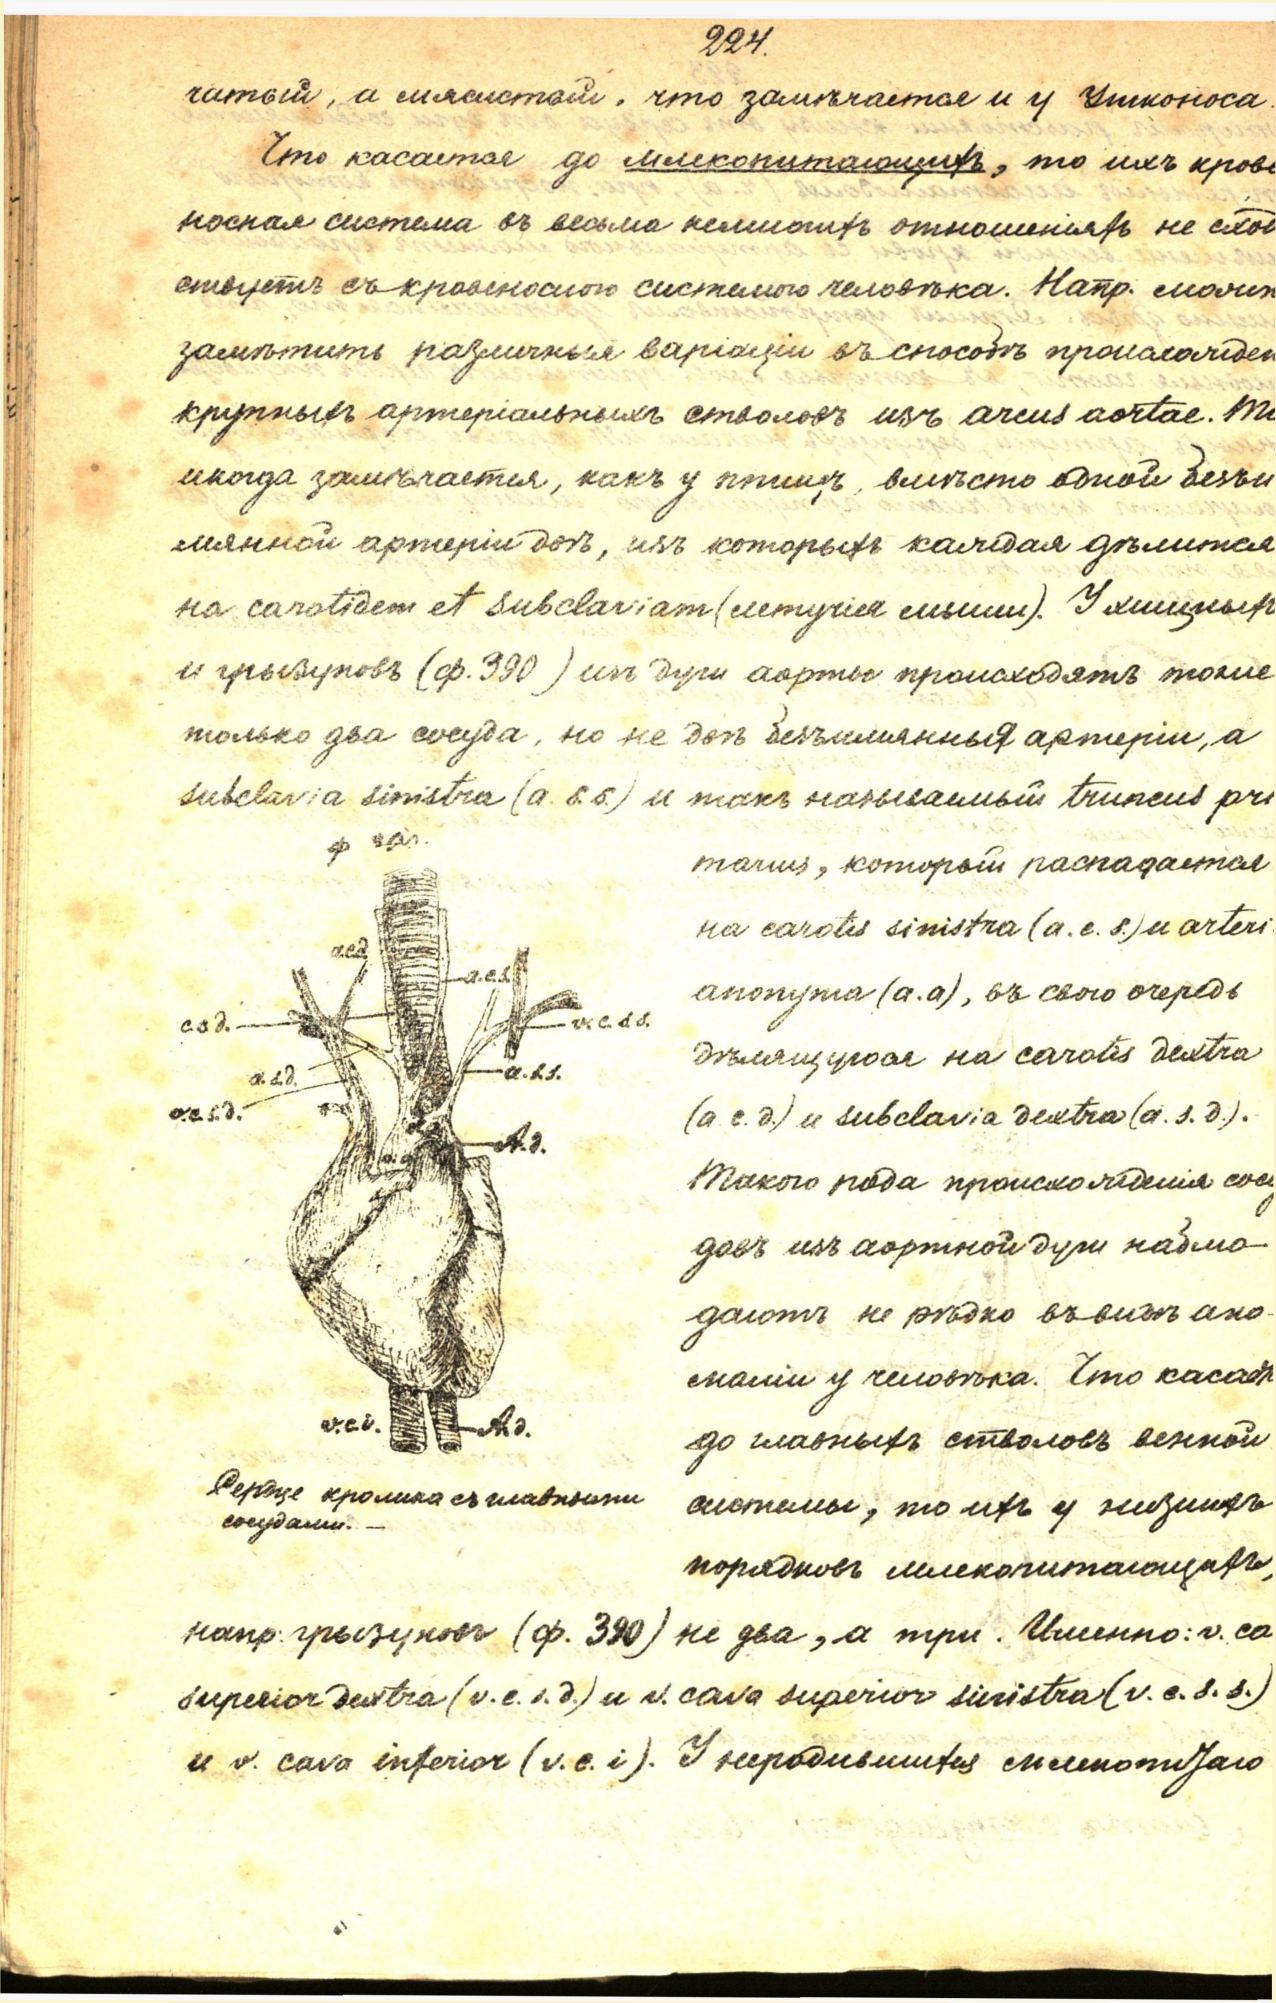 224.
чатый, а мясистый, что замѣчается и у Утконоса.
Что касается до млекопитающихъ, то ихъ крове
носная система въ весьма немногихъ отношеніяхъ не сход
ствуетъ съ кровеносною системою человѣка. Напр. можно
замѣтить различныя варіаціи въ способѣ происхожден
крупныхъ артеріальныхъ стволовъ изъ arcus aortae. Та
иногда замѣчается, какъ у птицъ, вмѣсто одной безъи
мянной артеріи двѣ, изъ которыхъ каждая дѣлится
на carotidem et subclaviam (летучія мыши). У хищныхъ
и грызуновъ (ф. 390) изъ дуги аорты происходятъ тоже
только два сосуда, но не двѣ безъимянныя артеріи, а
subclavia sinistra (a. s. s.) и такъ называемый truncus pri
marius, который распадается
на carotis sinistra (a. c. s.) и arteri
anonyma (a. a), въ свою очередь
дѣлящуюся на carotis dextra
(a. c. d.) и subclavia dextra (a. s. d.).
Такого рода происхожденія сосу
довъ изъ аортной дуги наблю-
даютъ не рѣдко въ видѣ ано-
маліи у человѣка. Что касает
до главныхъ стволовъ венной
системы, то ихъ у низшихъ
порядковъ млекопитающихъ,
ф 390.
a.c.d
a.c.s.
c.s d.
v.c.s.s.
a.s.d.
a.s.s.
v.c.s.d.
A.d.
a.a
v.c.i.
A.d.
Сердце кролика съ главными
сосудами. —
напр. грызуновъ (ф. 390) не два, а три. Именно: v. ca
superior dextra (v. c. s. d.) и v. cava superior sinistra (v. c. s. s.)
и v. cava inferior (v. c. i). У неродившихся млекопитаю